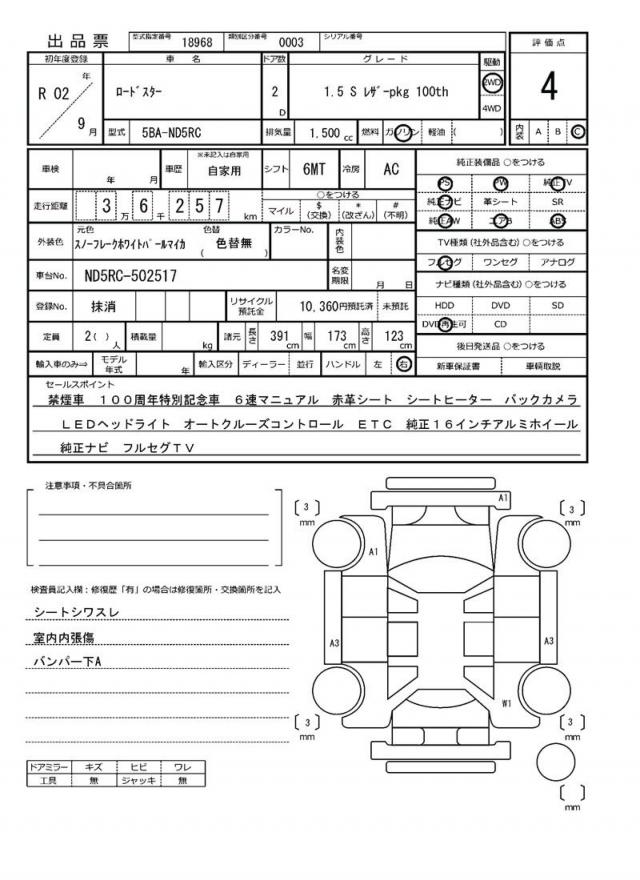 出品票 型式指定番号 18968 類別区分番号 0003 シリアル番号
初年度登録 車名 ドア数 グレード 駆動 評価点
R 02 年 9 月 ロードスター 2 D 1.5 S レザーpkg 100th 2WD 4WD 4
型式 5BA-ND5RC 排気量 1.500 cc 燃料 ガソリン 軽油 ( ) 内装 A B C
車検 年 月 車歴 ※未記入は自家用 自家用 シフト 6MT 冷房 AC
走行距離 3 万 6 千 2 5 7 km ○をつける マイル $ (交換) * (改ざん) # (不明)
外装色 元色 スノーフレークホワイトパールマイカ 色替 ( 色替無 ) カラーNo. 内装色
車台No. ND5RC-502517 名変期限 月 日
登録No. 抹消 リサイクル預託金 10,360円預託済 未預託
定員 2( ) 人 積載量 kg 諸元 長さ 391 cm 幅 173 cm 高さ 123 cm
輸入車のみ⇒ モデル年式 年 輸入区分 ディーラー 並行 ハンドル 左 右
純正装備品 ○をつける
PS PW 純正TV
純正ナビ 革シート SR
純正AW エアB ABS
TV種類(社外品含む)○をつける
フルセグ ワンセグ アナログ
ナビ種類(社外品含む)○をつける
HDD DVD SD
DVD再生可 CD
後日発送品 ○をつける
新車保証書 車輌取説
セールスポイント
禁煙車 100周年特別記念車 6速マニュアル 赤革シート シートヒーター バックカメラ
LEDヘッドライト オートクルーズコントロール ETC 純正16インチアルミホイール
純正ナビ フルセグTV
注意事項・不具合箇所
検査員記入欄:修復歴「有」の場合は修復箇所・交換箇所を記入
シートシワスレ
室内内張傷
バンパー下A
ドアミラー キズ ヒビ ワレ
工具 無 ジャッキ 無
[ 3 ] mm A1 [ 3 ] mm
A1
A3 A3
W1
[ 3 ] mm [ 3 ] mm
[ ] mm